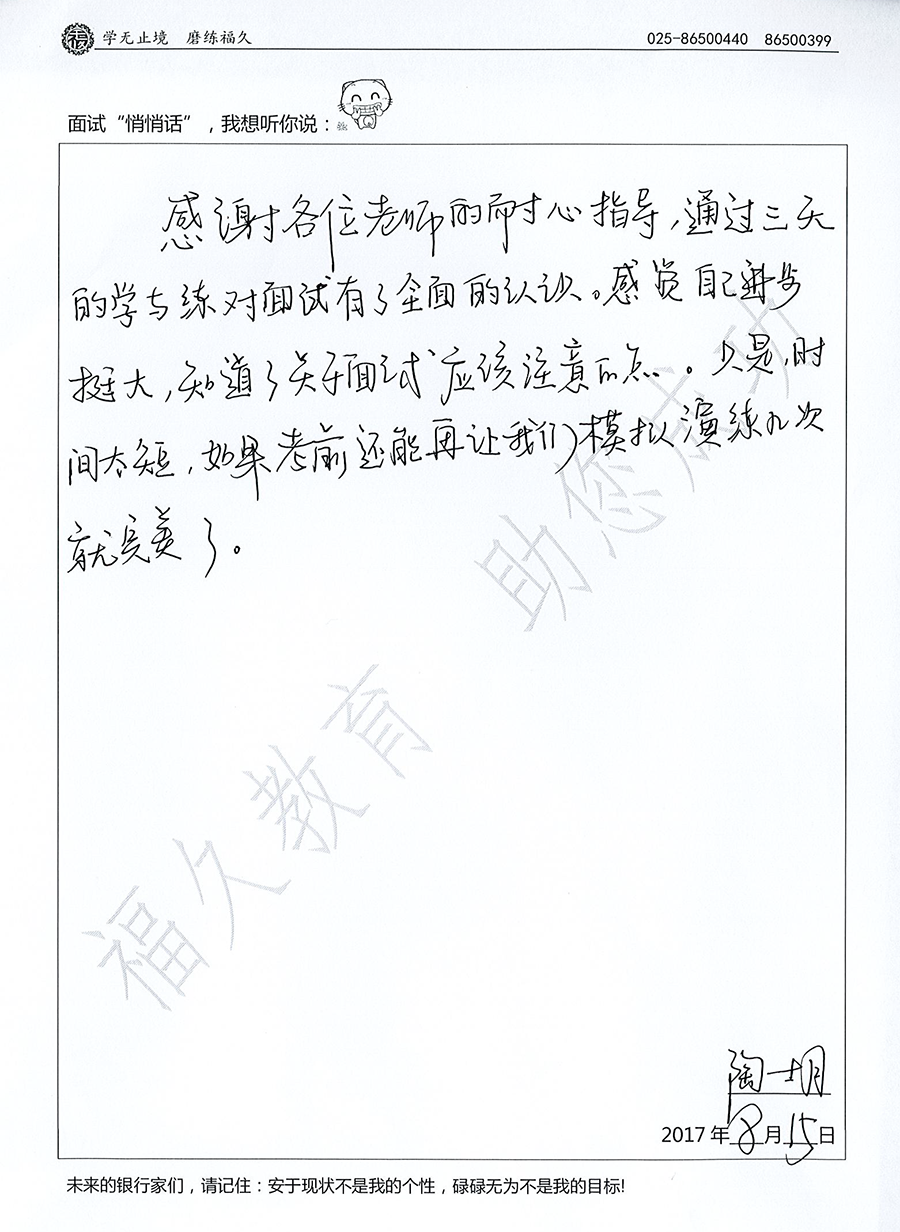 学无止境 磨练福久 025-86500440 86500399
面试“悄悄话”，我想听你说：
感谢各位老师的耐心指导，通过三天
的学与练对面试有了全面的认识。感觉自己进步
挺大，知道了关于面试应该注意的点。只是，时
间太短，如果考前还能再让我们模拟演练几次
就完美了。
助您成功
福久教育
陶一
2017年8月15日
未来的银行家们，请记住：安于现状不是我的个性，碌碌无为不是我的目标!